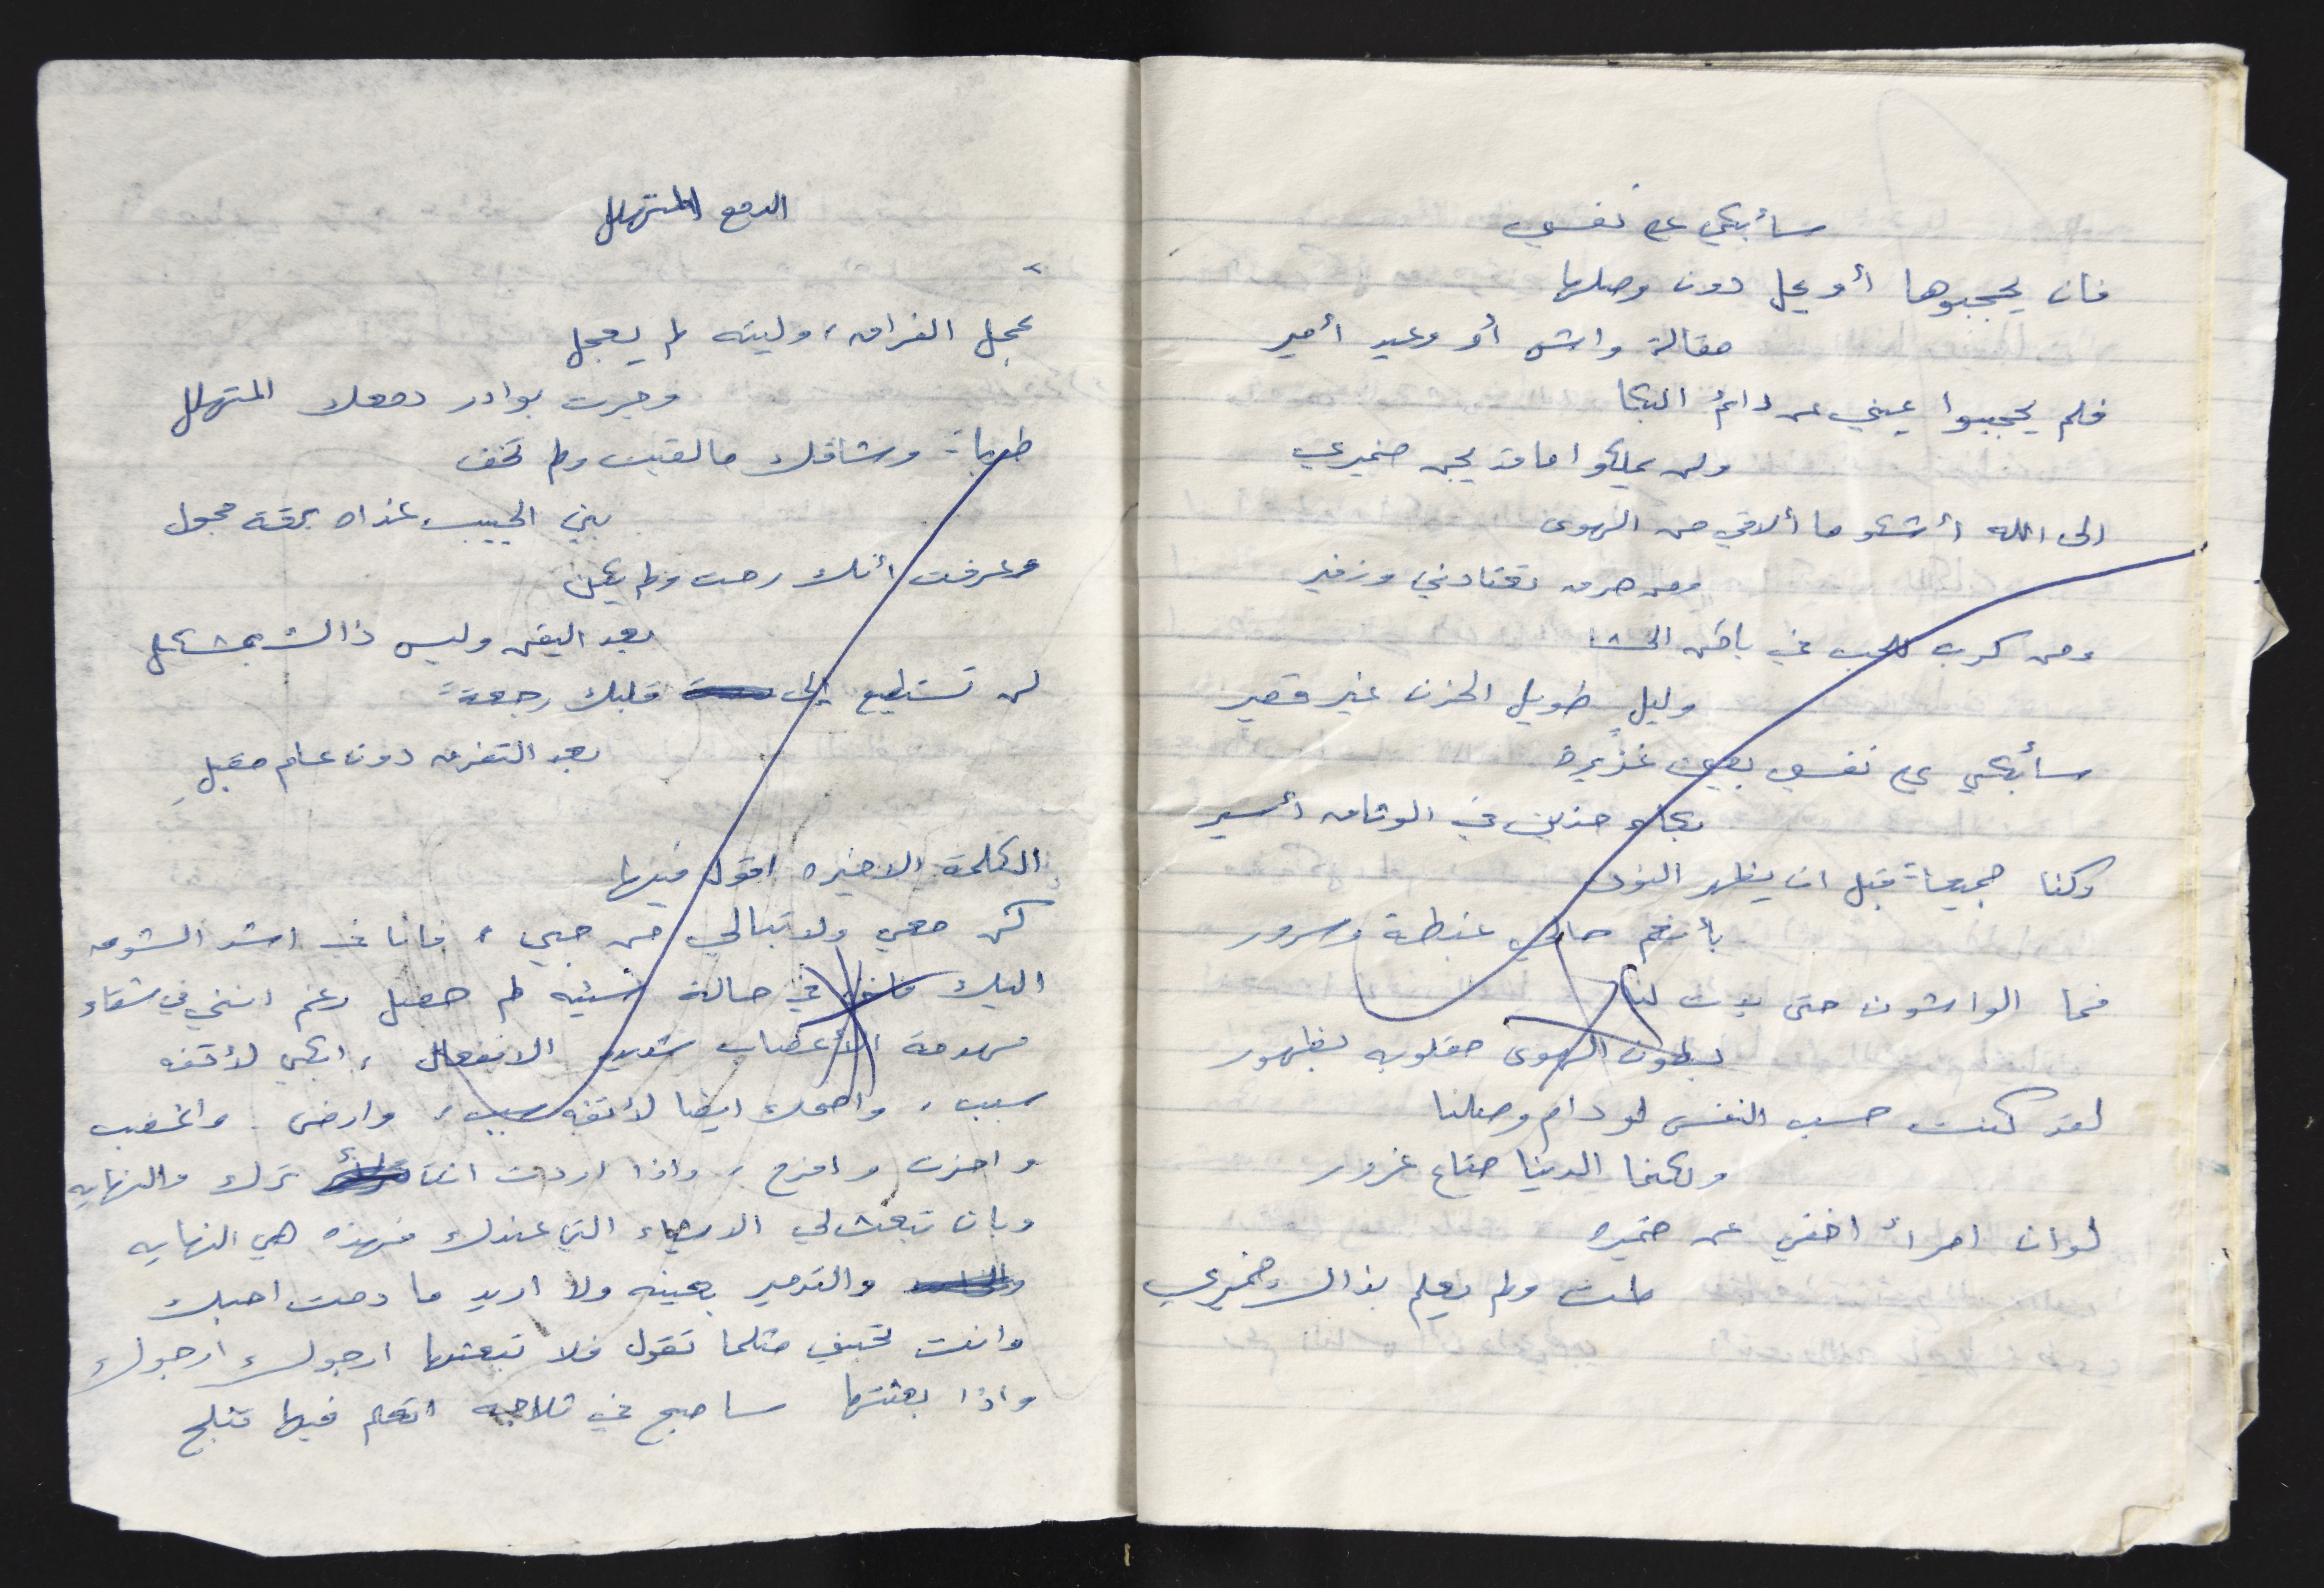 سأبكي على نفسي
فان يحجبوها أو يحل دون وصلها
مقالة واش أو وعيد أمير
فلم يحجبوا عيني عن دائم البكا
ولن يملكوا ما قد يجن ضميري
الى الله أشكو ما ألاقي من الهوى
ومن حرق تعتادني وزفير
ومن كرب للحب في باطن الحشا
وليلٍ طويل الحزن غير قصير
سأبكي على نفسي بعين غزيرة
بكاء حزين في الوثاق أسير
وكنا جميعاً قبل ان يظهر النوى
بأنعم حالي غبطة وسرور
فما الواشون حتى بدت لنا
بطون الهوى مقلوبه بظهور
لقد كنت حسب النفس لو دام وصلنا
ولكنما الدنيا متاع غرور
لو ان امرأ اخفي عن ضميره
لمت ولم يعلم بذاك ضميري
الدمع المتهلل
عجل الفراق، وليته لم يعجل
وجرت بوادر دمعك المتهلل
طرباً وشاقك ما لقيت ولم تخف
بين الحبيب غداه برقة محول
وعرفت أنك رحت ولم يكن
بعد اليقين وليس ذاك بمشكل
لن تستطيع إلى قلبك رجعةً
بعد التفرق دون عام مقبلِ
الكلمة الاخيره اقول فيها
كن معي ولا تبالي من حبي، فانا في اشد الشوق
اليك في حالة سيئه لم رغم انني في شقاء
مهدمة الأعصاب شديد الانفعال، ابكي لأتفه
سبب، واضحك ايضا لأتفه سبب، وارضى واغضب
واحزن وافرح، واذا اردت انت ترك والنهايه
وبان تبعث لي الاشياء التي عندك فهذه هي النهايه
والتدمير بعينه ولا اريد ما دمت احبك
وانت تحبني مثلما تقول فلا تبعثها ارجوك ارجوك
واذا بعثتها ساصبح في ثلاجه فيها ثلج